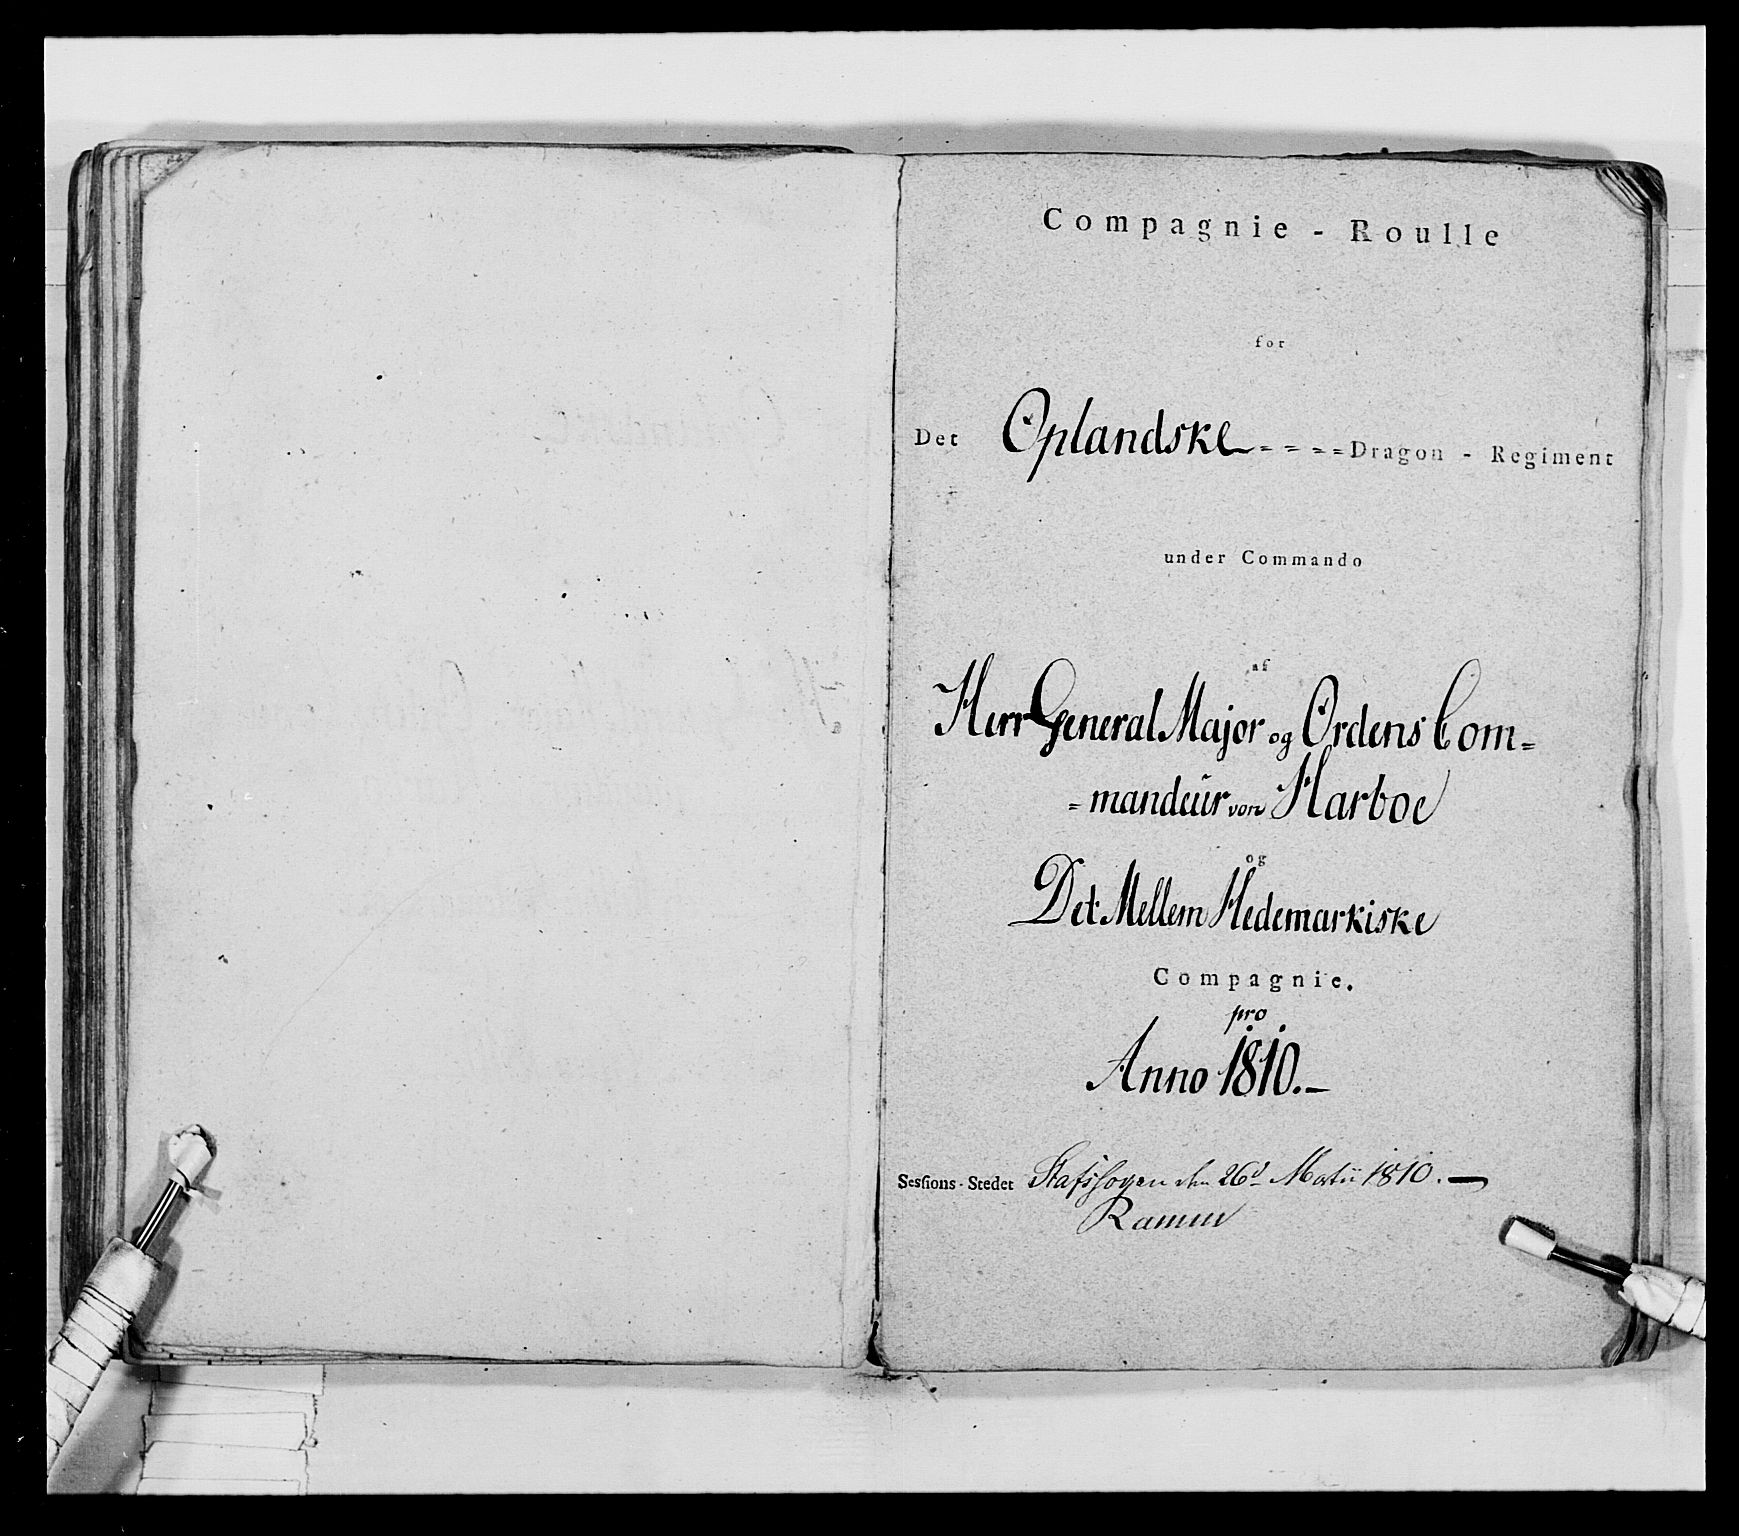 Compagnie - Roulle
for
Det Oplandske = = = = Dragon - Regiment
under Commando
af
Herr General Major og Ordens Com=
=mandeür von Harboe
og
Det Mellem Hedemarkiske
Compagnie.
pro
Anno 1810.—
Sessions-Stedet den 26d 1810. —
Ramm